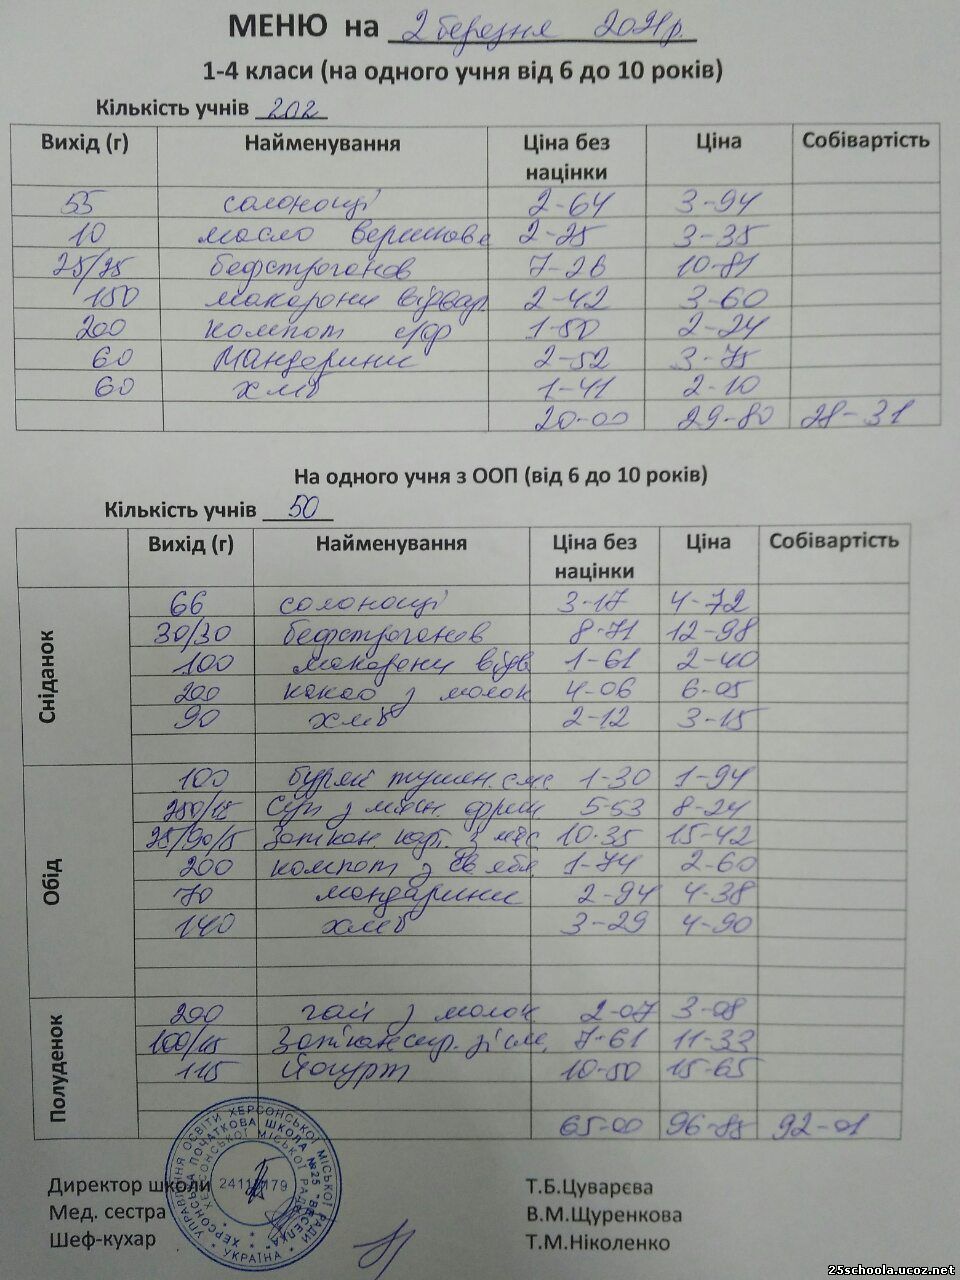 МЕНЮ на 2 березня 2021р.
1-4 класи (на одного учня від 6 до 10 років)
Кількість учнів 202
Вихід (г) Найменування Ціна без націнки Ціна Собівартість
55 солонощі 2-64 3-94
10 масло вершкове 2-25 3-35
25/25 бефстроганов 7-26 10-81
150 макарони відвар. 2-42 3-60
200 компот с/ф 1-50 2-24
60 Мандарини 2-52 3-75
60 хліб 1-41 2-10
20-00 29-80 28-31
На одного учня з ООП (від 6 до 10 років)
Кількість учнів 50
Вихід (г) Найменування Ціна без націнки Ціна Собівартість
Сніданок
66 солонощі 3-17 4-72
30/30 бефстроганов 8-71 12-98
100 макарони відв 1-61 2-40
200 какао з молок 4-06 6-05
90 хліб 2-12 3-15
Обід
100 буряк тушен. 1-30 1-94
250/15 Суп з 5-53 8-24
Запікан. карт. з м'яс 10-35 15-42
200 компот з св ябл 1-74 2-60
70 мандарини 2-94 4-38
140 хліб 3-29 4-90
Полуденок
200 чай з молок 2-07 3-08
100/15 Запіканка 7-61 11-33
115 Йогурт 10-50 15-65
65-00 96-85 92-01
Директор школи Т.Б.Цуварєва
Мед. сестра В.М.Щуренкова
Шеф-кухар Т.М.Ніколенко
УПРАВЛІННЯ ОСВІТИ ХЕРСОНСЬКОЇ МІСЬКОЇ РАДИ
ХЕРСОНСЬКА ПОЧАТКОВА ШКОЛА №25 "ВЕСЕЛКА"
ХЕРСОНСЬКОЇ МІСЬКОЇ РАДИ
УКРАЇНА
25schoola.ucoz.net